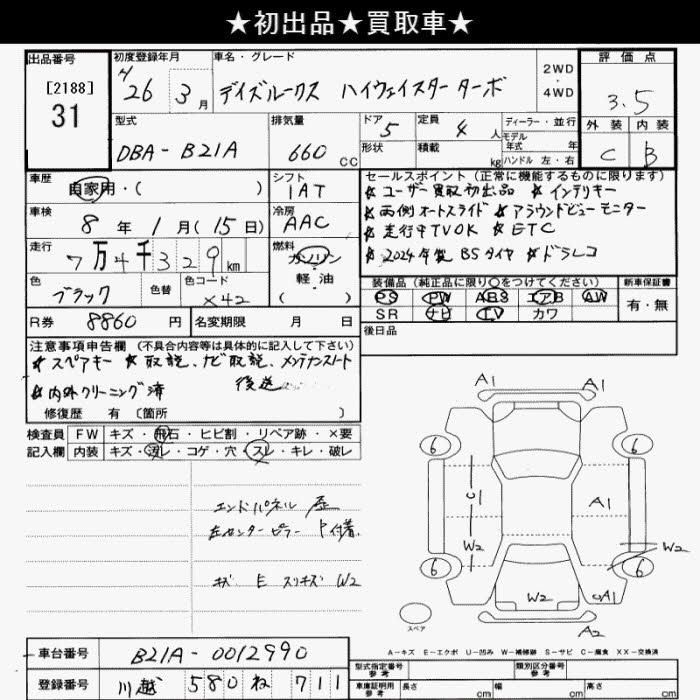 ★初出品★買取車★
出品番号
[2188]
31
初度登録年月
H26 3月
車名・グレード
デイズルークス ハイウェイスターターボ
2WD
・
4WD
評価点
3.5
外装 内装
C B
型式
DBA-B21A
排気量
660 CC
ドア 5
形状
定員 4 人
積載 kg
ディーラー・並行
モデル
年式 年
ハンドル 左・右
車歴
自家用・( )
シフト
IAT
セールスポイント(正常に機能するものに限ります)
★ユーザー買取初出品 ★インテリキー
★両側オートスライド ★アラウンドビューモニター
★走行中TVOK ★ETC
★2024年製BSタイヤ ★ドラレコ
車検
8年1月(15日)
冷房
AAC
走行
7万4千329km
燃料
ガソリン
軽・油
( )
色
ブラック
色替
色コード
X42
装備品(純正品に限り○をつけてください)
PS PW ABS エアB AW
SR ナビ TV カワ
新車保証書
有・無
R券 8860円
名変期限 月 日
後日品
注意事項申告欄(不具合内容等は具体的に記入して下さい)
★スペアキー ★取説、ナビ取説、メンテナンスノート
後送
★内外クリーニング済
修復歴 有 〔箇所 〕
検査員 FW キズ・飛石・ヒビ割・リペア跡・×要
記入欄 内装 キズ・汚レ・コゲ・穴・スレ・キレ・破レ
エンドパネル 歪
左センターピラー P付着
キズ E スリキズ W2
A1 A1
6 6
C1 A1
W2
6 6
W2 A1
A2
スペア
A-キズ E-エクボ U-凹み W-補修跡 S-サビ C-腐食 XX-交換済
車台番号 B21A-0012990
登録番号 川越 580 ね 711
型式指定番号
参考
類別区分番号
参考
車庫証明用
参考
長さ cm 幅 cm 高さ cm